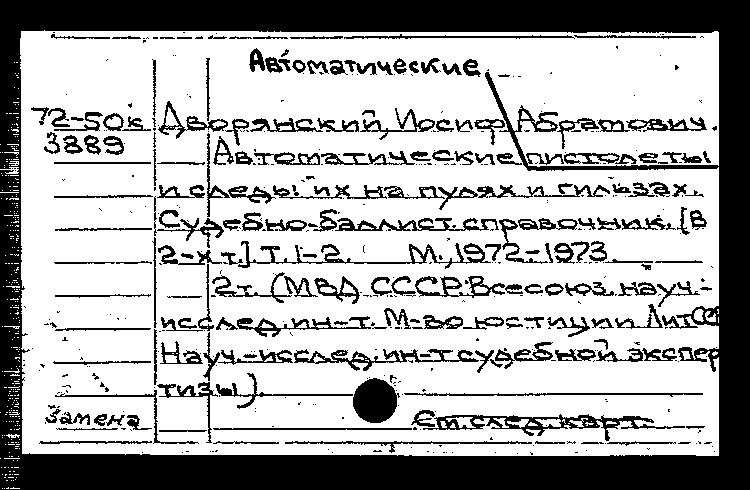 Автоматические
72-50к Дворянский, Иосиф Абрамович.
3889 Автоматические пистолеты
и следы их на пулях и гильзах.
Судебно-баллист. справочник. [В
2-х т.] Т. 1-2. М., 1972-1973.
2т. (МВД СССР. Всесоюз. науч.-
исслед. ин-т. М-во юстиции ЛитССР
Науч.-исслед. ин-т судебной экспер
тизы).
Замена См. след. карт.